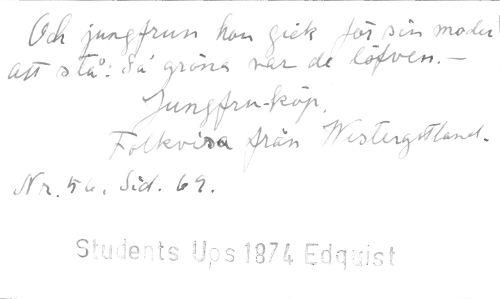 Och jungfrun hon gick för sin moder
att stå: Så gröna var de löfven. —
Jungfru-köp.
Folkvisa från Westergötland.
Nr. 56, Sid. 69.
Students Ups 1874 Edquist